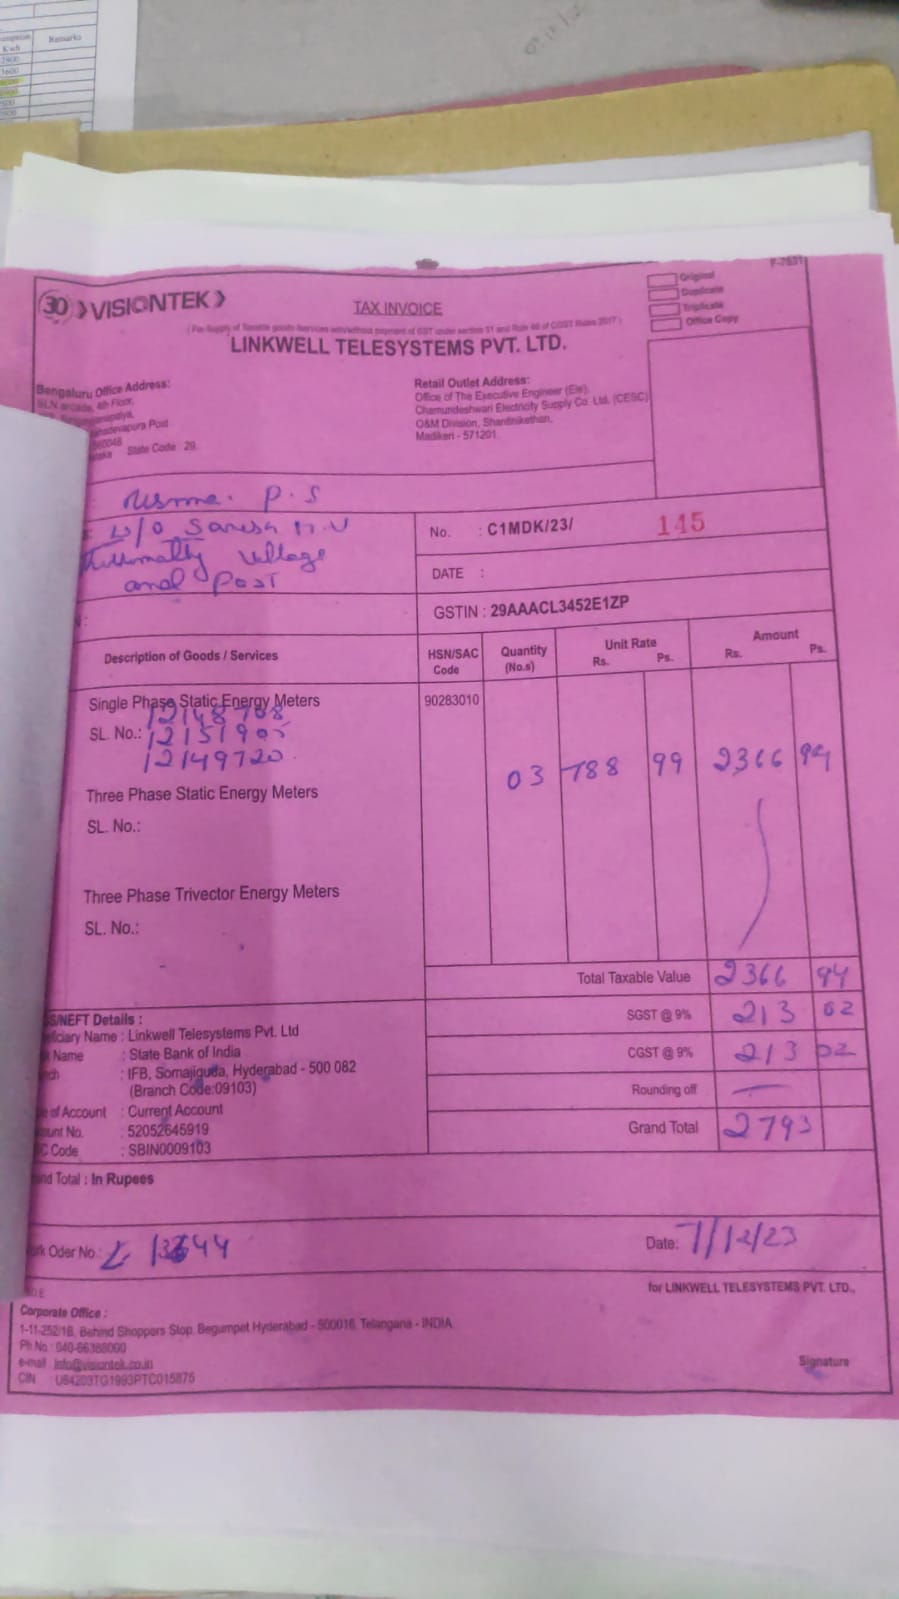 Kwh
Remarks
Original
Duplicate
Triplicate
Office Copy
30 VISIONTEK
TAX INVOICE
LINKWELL TELESYSTEMS PVT. LTD.
Bengaluru Office Address:
4th Floor,
Post
State Code 29.
Retail Outlet Address:
Office of The Executive Engineer (Ele),
Chamundeshwari Electricity Supply Co. Ltd. (CESC)
O&M Division, Shantinikethan,
Madikeri - 571201.
P.S
W/O
village
and Post
No. : C1MDK/23/ 145
DATE :
GSTIN : 29AAACL3452E1ZP
Description of Goods / Services
HSN/SAC Code
Quantity (No.s)
Unit Rate Rs. Ps.
Amount Rs. Ps.
Single Phase Static Energy Meters 90283010
12148708
SL. No.: 12151905
12149720
03 788 99 2366 94
Three Phase Static Energy Meters
SL. No.:
Three Phase Trivector Energy Meters
SL. No.:
Total Taxable Value 2366 94
SGST @ 9% 213 02
CGST @ 9% 213 02
Rounding off —
Grand Total 2793
/NEFT Details :
Name : Linkwell Telesystems Pvt. Ltd
Name : State Bank of India
: IFB, Somajiguda, Hyderabad - 500 082
(Branch Code:09103)
of Account : Current Account
No. : 52052645919
Code : SBIN0009103
Total : In Rupees
Oder No.:
Date: 7/12/23
for LINKWELL TELESYSTEMS PVT. LTD.,
Corporate Office :
1-11-252/1B, Behind Shoppers Stop, Begumpet Hyderabad - 500016, Telangana - INDIA
Ph No : 040-66388000
e-mail : info@visiontek.co.in
CIN : U64203TG1993PTC015875
Signature